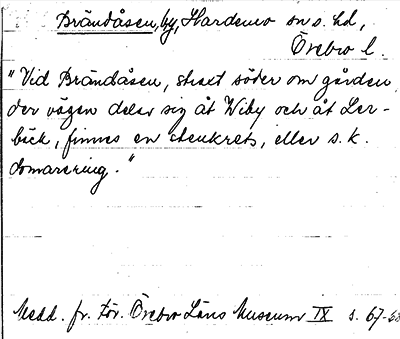 Brändåsen, by, Hardemo sn o. hd,
Örebro l.
"Vid Brändåsen, strax söder om gården
der vägen delar sig åt Wiby och åt Ler-
bäck, finnes en stenkrets, eller s. k.
domarering."
Medd. fr. För. Örebro Läns Museum IX s. 67-68